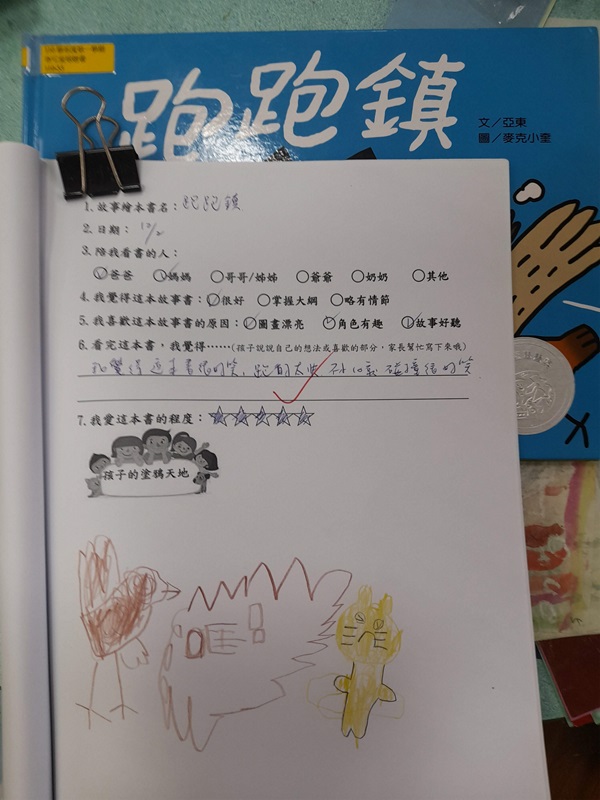 跑跑鎮
文／亞東
圖／麥克小奎
1. 故事繪本書名：跑跑鎮
2. 日期：12/2
3. 陪我看書的人：
爸爸 媽媽 哥哥/姊姊 爺爺 奶奶 其他
4. 我覺得這本故事書：很好 掌握大綱 略有情節
5. 我喜歡這本故事書的原因：圖畫漂亮 角色有趣 故事好聽
6. 看完這本書，我覺得……(孩子說說自己的想法或喜歡的部分，家長幫忙寫下來哦)
我覺得這本書很好笑，跑
碰撞很好笑
7. 我愛這本書的程度：
孩子的塗鴉天地